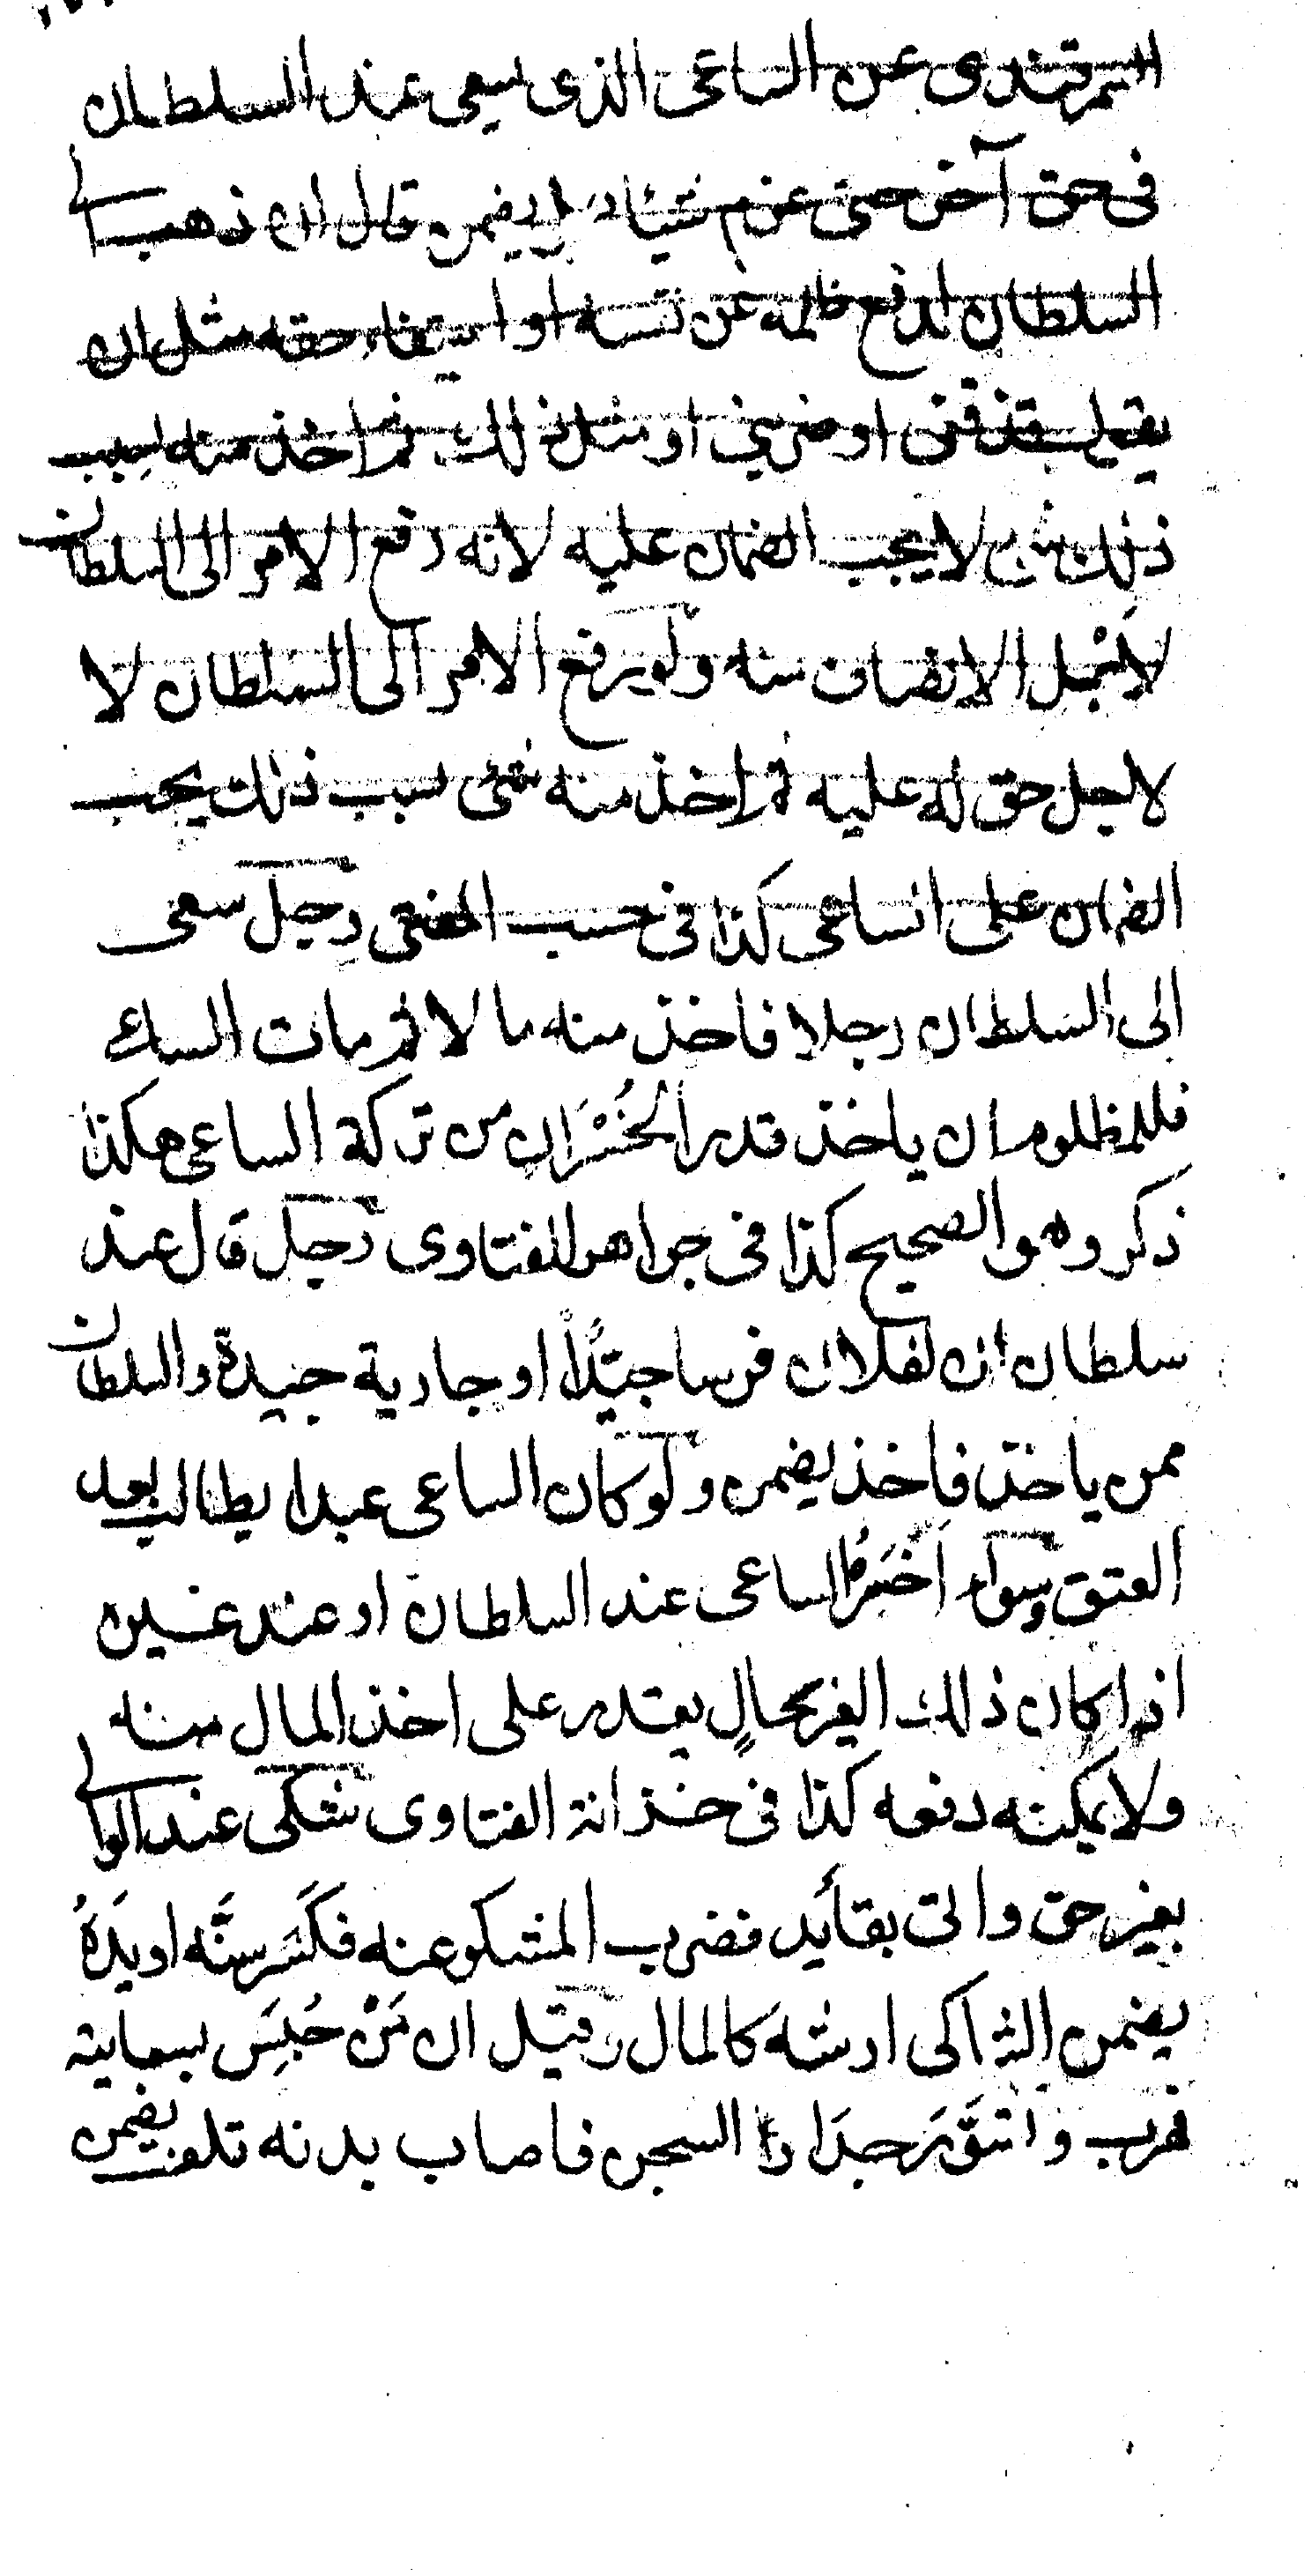 السمرقندى عن الساعى الذى سعى عند السلطان
فى حق آخر حتى غرم شيئا هل يضمن قال ان ذهب الى
السلطان لدفع ظلمه عن نفسه او استيفاء حقه مثل ان
يقول قذفنى او ضربنى او مثل ذلك ثم اخذ منه بسبب
ذلك شئ لا يجب الضمان عليه لانه رفع الامر الى السلطان
لاجل الانصاف منه ولو رفع الامر الى السلطان لا
لاجل حق له عليه ثم اخذ منه شئ بسبب ذلك يجب
الضمان على الساعى كذا فى حسب المفتى رجل سعى
الى السلطان رجلا فاخذ منه مالا ثم مات الساعى
فللمظلوم ان ياخذ قدر الخُسْرَان من تركة الساعى هكذا
ذكر وهو الصحيح كذا فى جواهر الفتاوى رجل قال عند
سلطان ان لفلان فرسا جيّدًا او جارية جيدة والسلطان
ممن ياخذ فاخذ يضمن ولو كان الساعى عبدا يطالب بعد
العتق وسواء اخبر الساعى عند السلطان او عند غيره
اذا كان ذلك الغير بحالٍ يقدر على اخذ المال منه
ولا يمكنه دفعه كذا فى خزانة الفتاوى شكى عند الوالى
بغير حق واتى بقائد فضرب المشكو عنه فكَسَر سِنَّه او يَدَهُ
يضمن الشاكى ارشه كالمال وقيل ان مَنْ حُبِسَ بسعاية
فهرب وتسَوَّرَ جدَار السجن فاصاب بدنه تلف يضمن